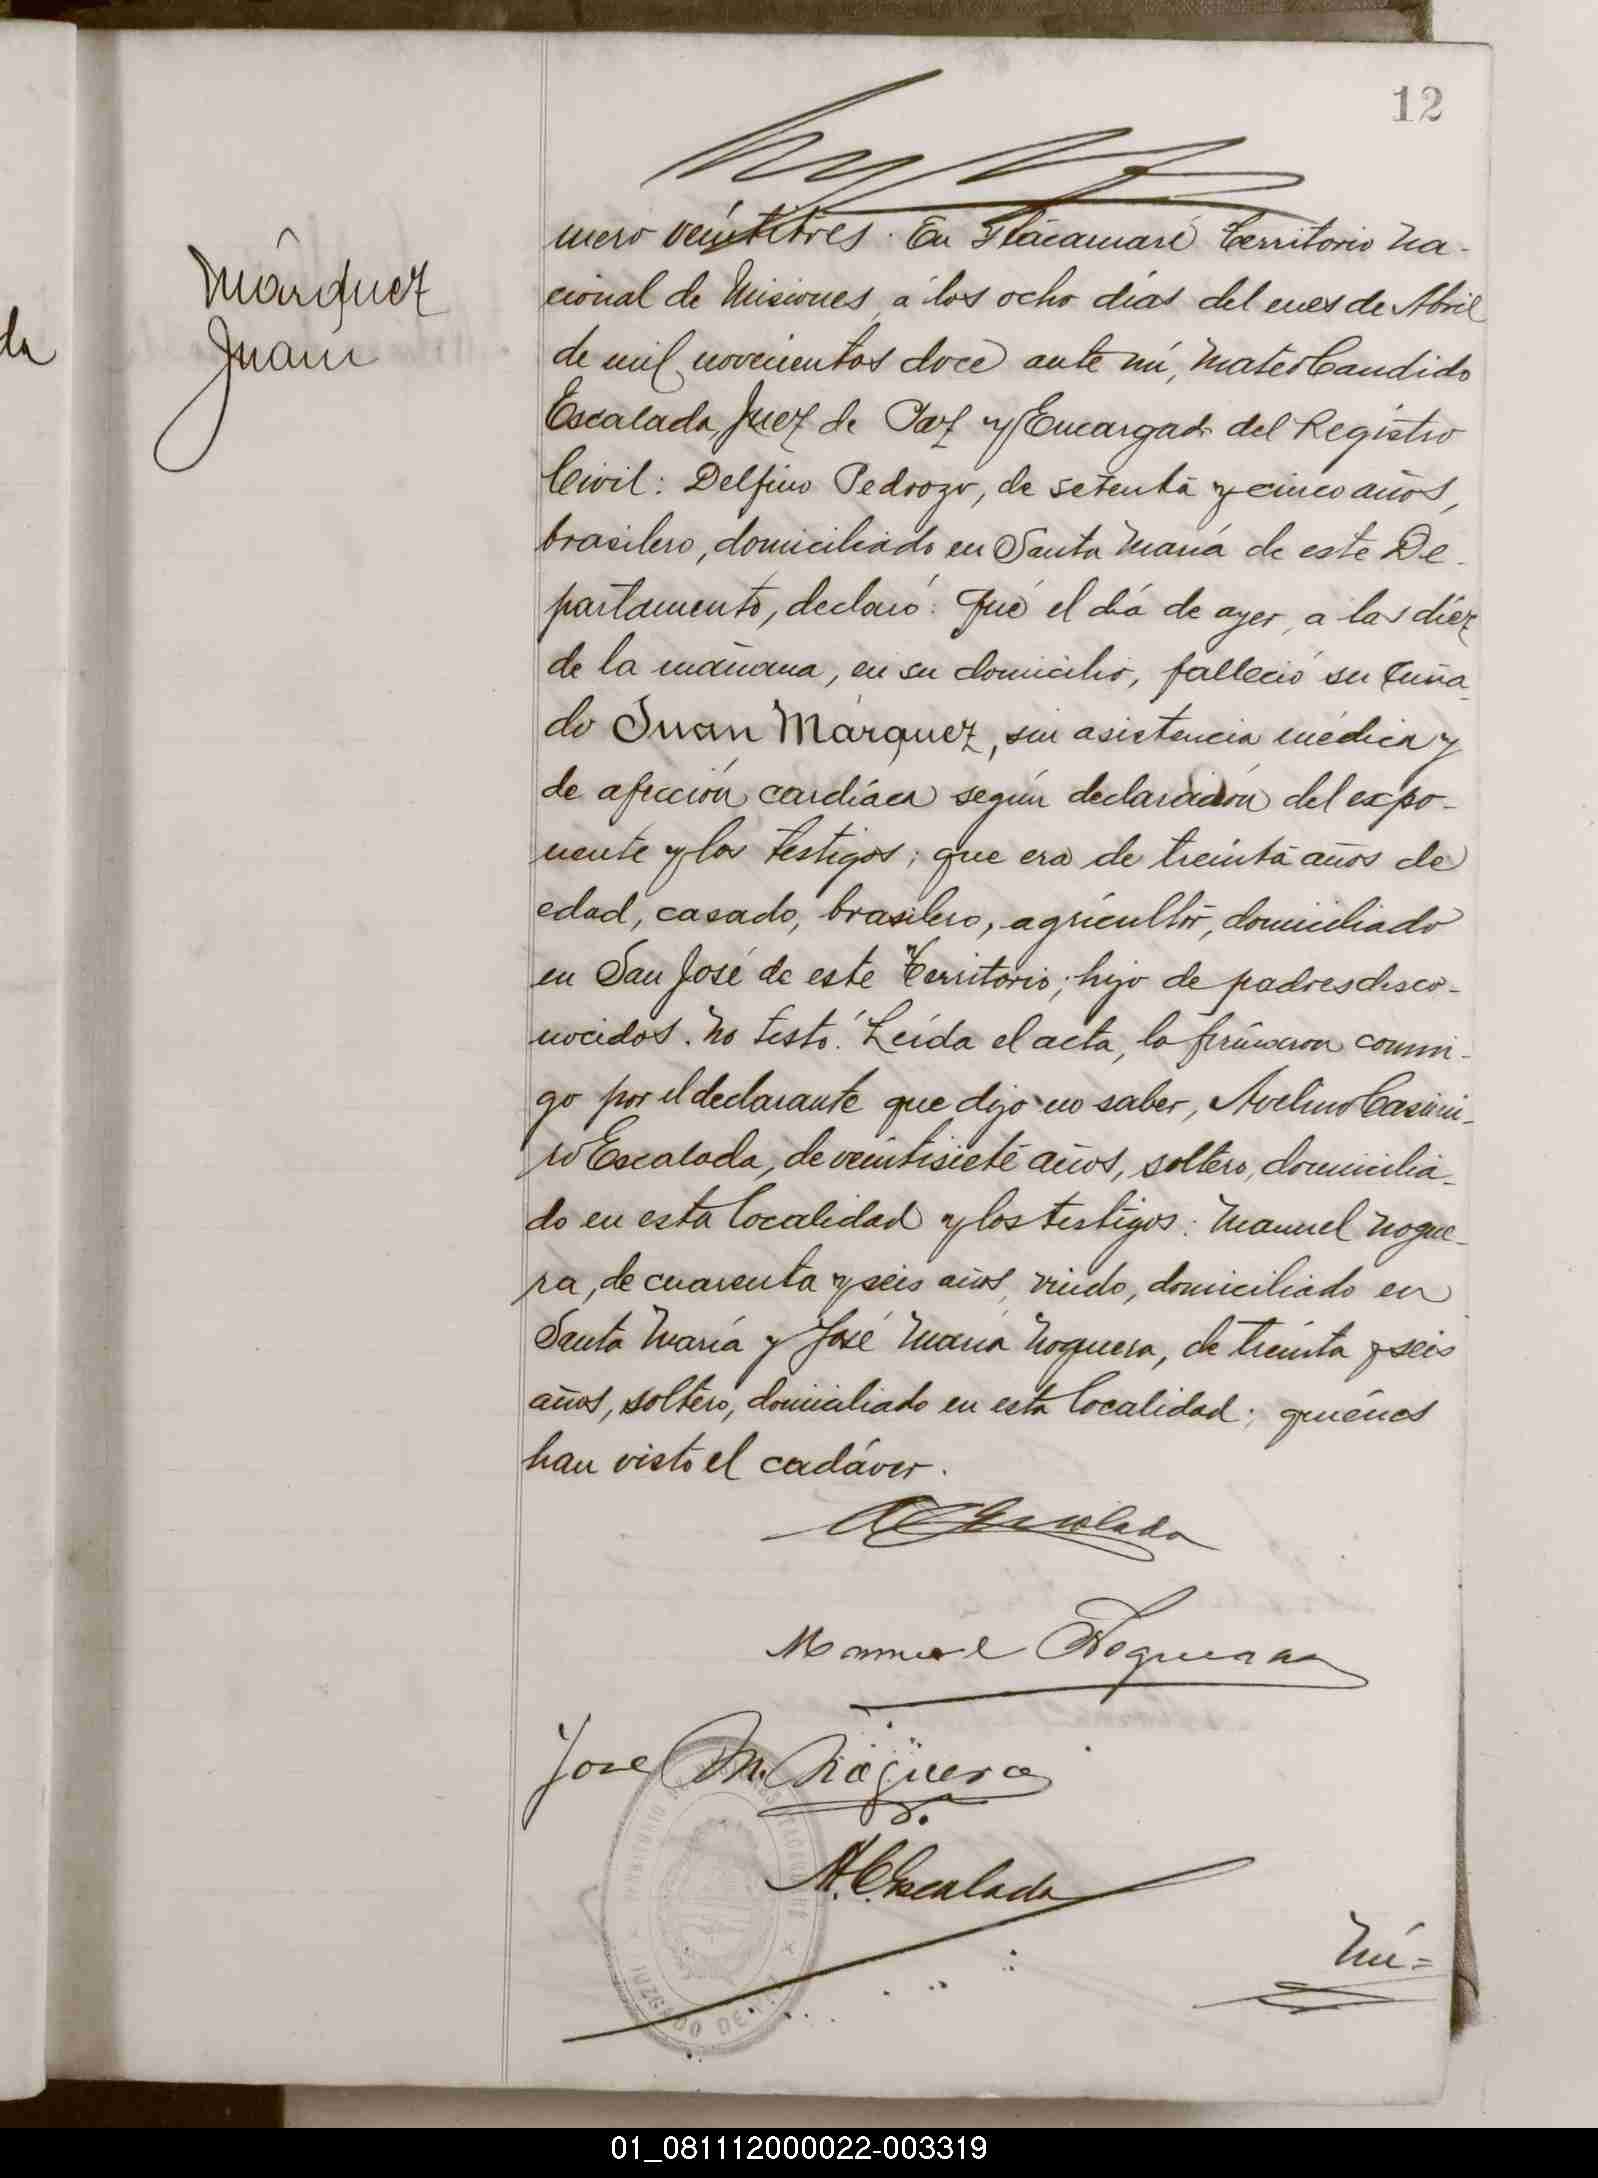 12
Márquez
Juan
da
mero veintitres. En Itacaruaré Territorio Na-
cional de Misiones, á los ocho días del mes de Abril
de mil novecientos doce ante mí, Mateo Candido
Escalada, Juez de Paz y Encargado del Registro
Civil: Delfino Pedrozo, de setenta y cinco años,
brasilero, domiciliado en Santa María de este De-
partamento, declaró: Que el día de ayer, a las diez
de la mañana, en su domicilio, falleció su cuña-
do Juan Márquez, sin asistencia médica y
de afección cardíaca según declaración del expo-
nente y los testigos; que era de treinta años de
edad, casado, brasilero, agricultor, domiciliado
en San José de este Territorio; hijo de padres desco-
nocidos. No testó. Leída el acta, la firmaron conmi-
go por el declarante que dijo no saber, Avelino Casimi-
ro Escalada, de veintisiete años, soltero, domicilia-
do en esta localidad y los testigos: Manuel Nogue-
ra, de cuarenta y seis años, viudo, domiciliado en
Santa María y José María Noguera, de treinta y seis
años, soltero, domiciliado en esta localidad; quiénes
han visto el cadáver.
A C Escalada
Manuel Noguera
Jose M. Noguera
M. C. Escalada
Nú=
01_081112000022-003319